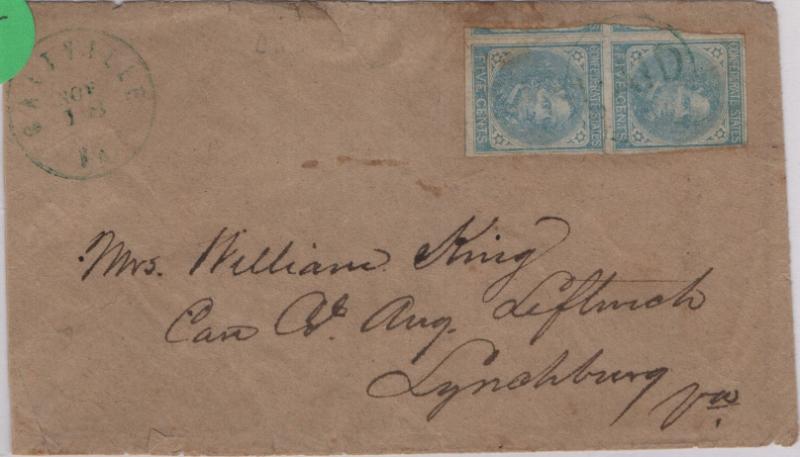 SALTVILLE
NOV
VA
FIVE CENTS
CONFEDERATE STATES
FIVE CENTS
CONFEDERATE STATES
Mrs. William King
Care Col. Aug. Leftwich
Lynchburg
Va.